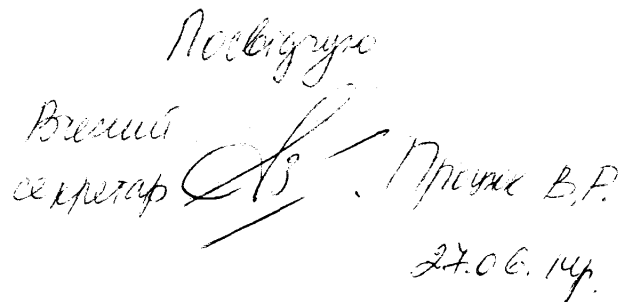 Посвідчую
Вчений
секретар Процик В.Р.
27.06.14р.